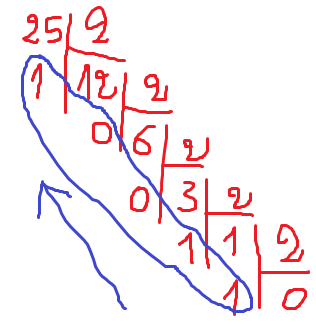 25 2
1 12 2
0 6 2
0 3 2
1 1 2
1 0